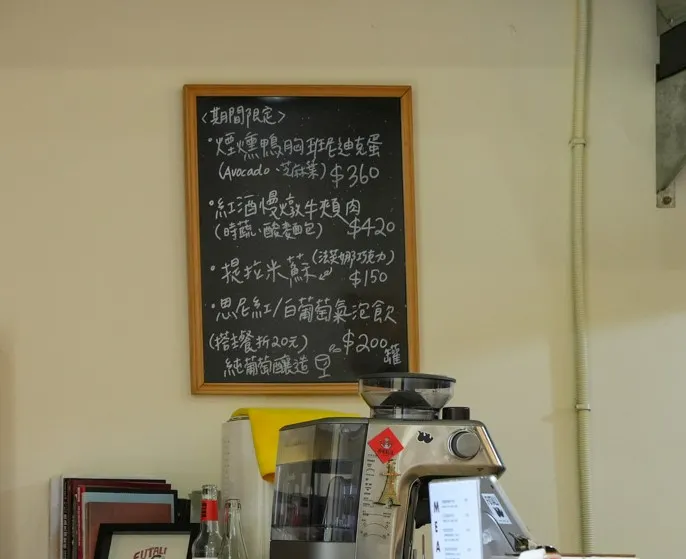 <期間限定>
·煙燻鴨胸班尼迪克蛋
(Avocado、芝麻葉) $360
·紅酒慢燉牛頰肉
(時蔬、酸麵包) $420
·提拉米蘇 (法芙娜巧克力)
$150
·思尼紅/白葡萄氣泡飲
(搭主餐折20元) $200罐
純葡萄釀造
EUTALI
M
E
A